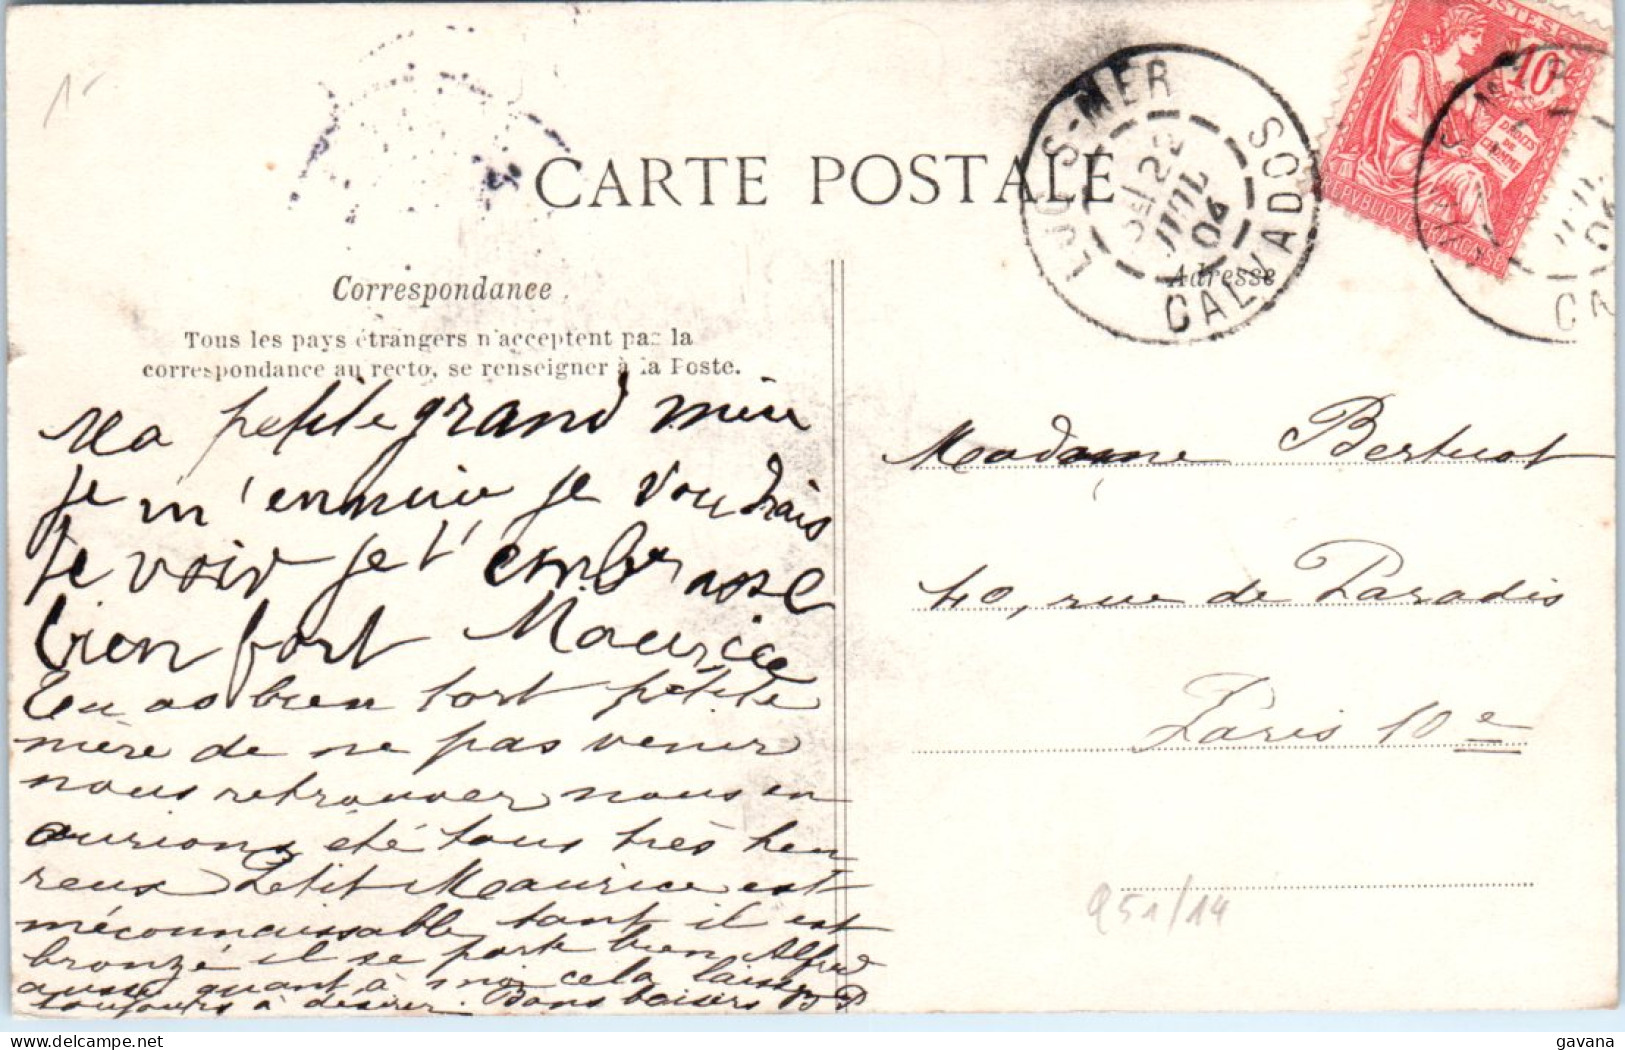 1-
CARTE POSTALE
LUC S-MER
22
JUIL
04
CALVADOS
POSTES
10
DROITS
DE
L'HOMME
REPVBLIQVE FRANÇAISE
Correspondance
Tous les pays étrangers n'acceptent pas la
correspondance au recto, se renseigner à la Poste.
Adresse
Ma petite grand mère
je m'ennuie je voudrais
te voir je t'embrasse
bien fort Maurice
Tu as bien tort petite
mère de ne pas venir
nous retrouver nous en
aurions été tous très heu
reux Petit Maurice est
méconnaissable tant il est
bronzé il se porte bien Alfred
aussi quant à moi cela laisse
toujours à désirer. Bons baisers
Madame Bertuot
40, rue de Paradis
Paris 10e
951/14
gavana